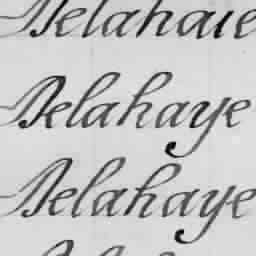 Delahaie
Delahaye
Delahaye